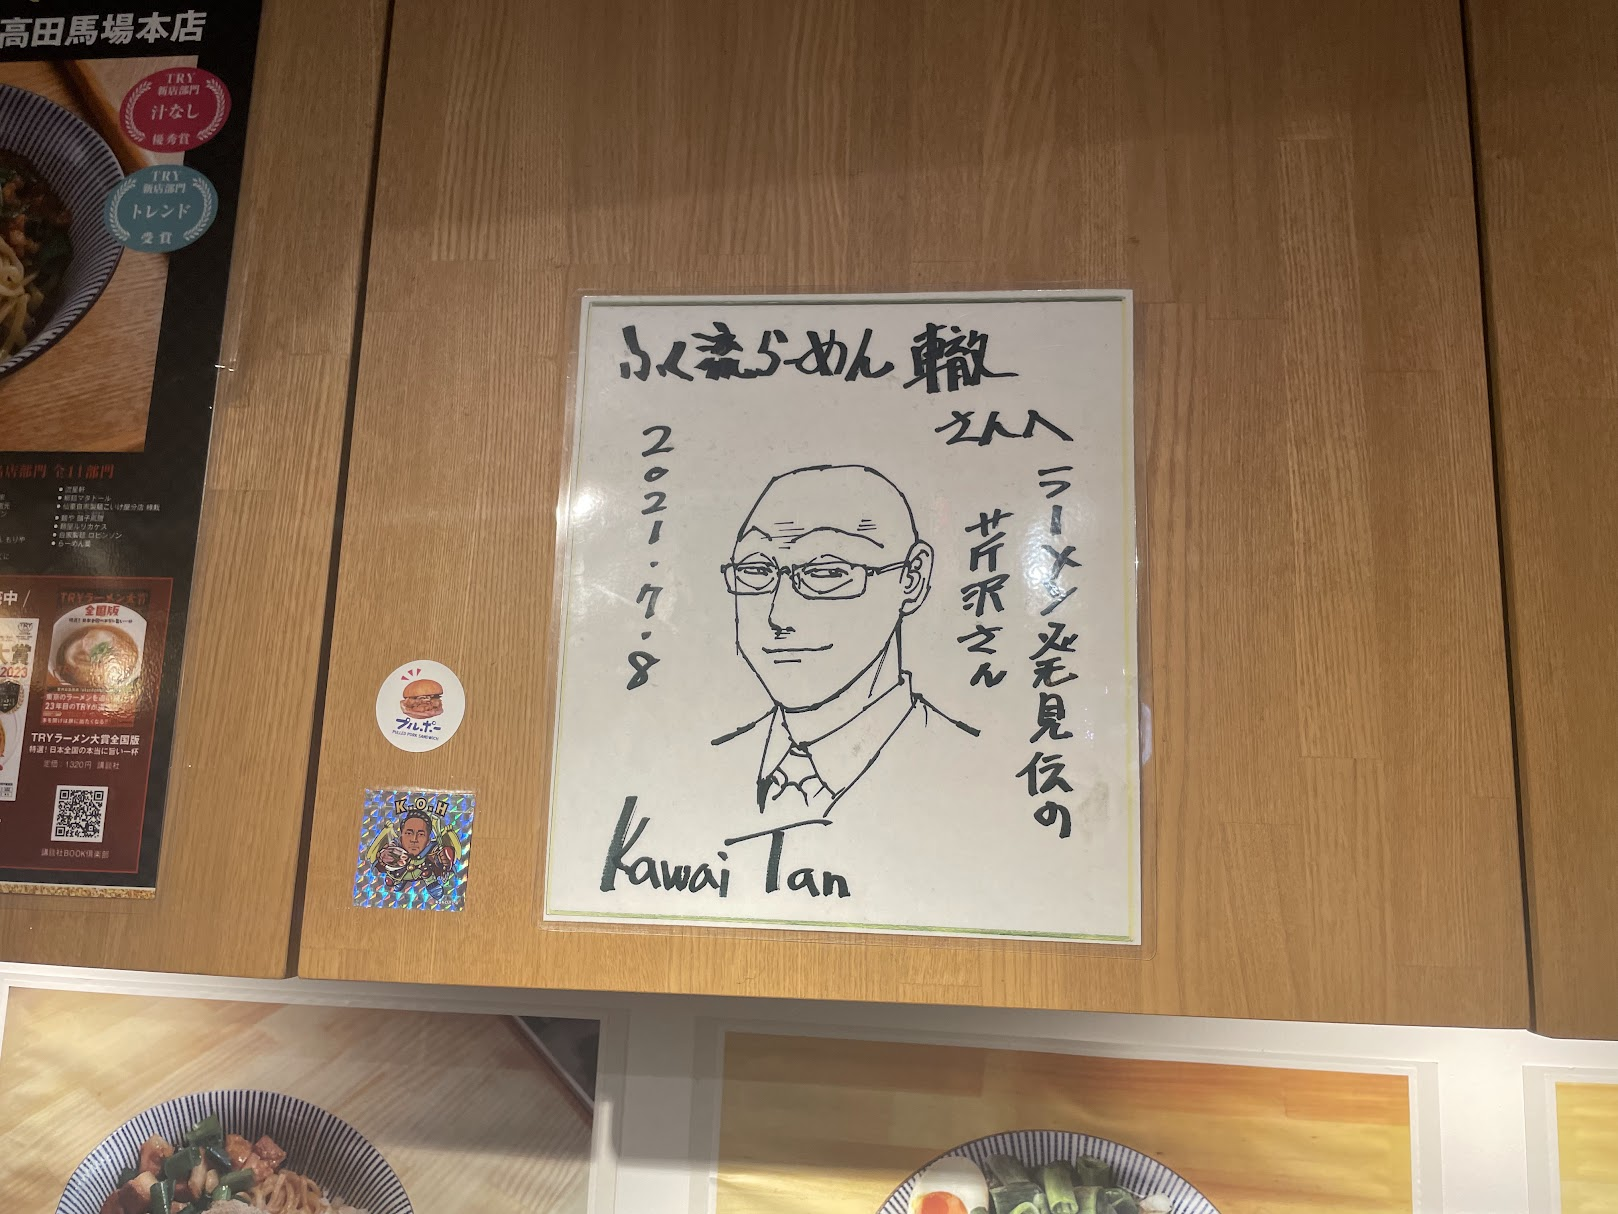 高田馬場本店
TRY
新店部門
汁なし
優秀賞
TRY
新店部門
トレンド
受賞
店部門 全11部門
TRYラーメン大賞
全国版
大賞
2023
23年目のTRY
TRYラーメン大賞全国版
特選!日本全国の本当に旨い一杯
定価:1320円 講談社
講談社BOOK倶楽部
プルポー
PULLED PORK SANDWICH
K.O.H
ふく流らーめん 轍
さんへ
ラーメン発見伝の
芹沢さん
2021.7.8
Kawai Tan